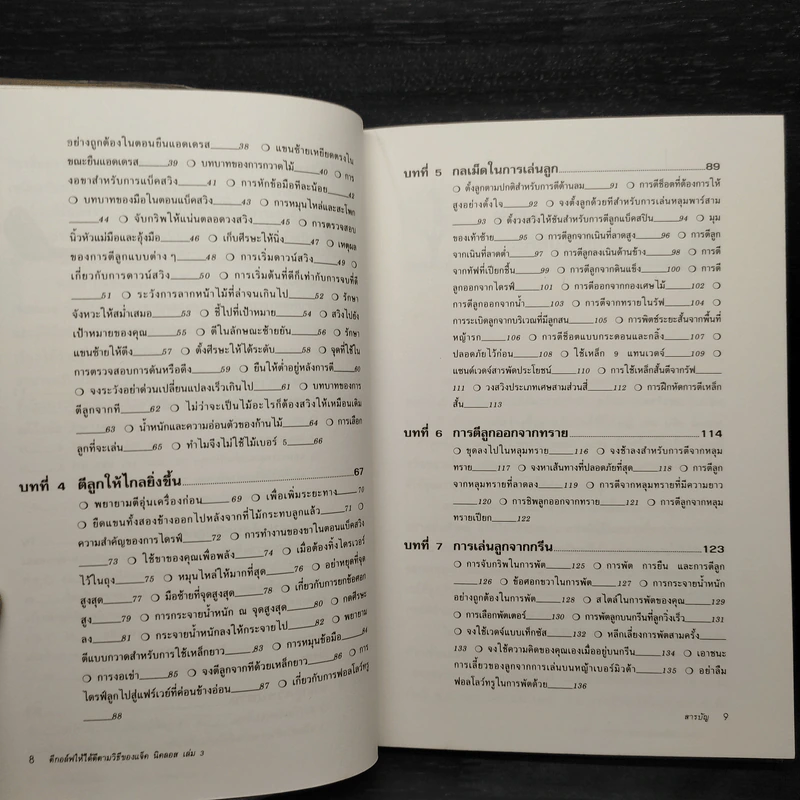 อย่างถูกต้องในตอนยืนแอดเดรส____38 ❍ แขนซ้ายเหยียดตรงใน
ขณะยืนแอดเดรส____39 ❍ บทบาทของการกวาดไม้____40 ❍ การ
งอขาสำหรับการแบ็คสวิง____41 ❍ การหักข้อมือทีละน้อย____42
❍ บทบาทของมือในตอนแบ็คสวิง____43 ❍ การหมุนไหล่และสะโพก
____44 ❍ จับกริพให้แน่นตลอดวงสวิง____45 ❍ การตรวจสอบ
นิ้วหัวแม่มือและอุ้งมือ____46 ❍ เก็บศีรษะให้นิ่ง____47 ❍ เหตุผล
ของการตีลูกแบบต่าง ๆ____48 ❍ การเริ่มดาวน์สวิง____49 ❍
เกี่ยวกับการดาวน์สวิง____50 ❍ การเริ่มต้นที่ดีก็เท่ากับการจบที่ดี
____51 ❍ ระวังการลากหน้าไม้ที่ล่าจนเกินไป____52 ❍ รักษา
จังหวะให้สม่ำเสมอ____53 ❍ ชี้ไปที่เป้าหมาย____54 ❍ สวิงไปยัง
เป้าหมายของคุณ____55 ❍ ตีในลักษณะซ้ายยัน____56 ❍ รักษา
แขนซ้ายให้ตึง____57 ❍ ตั้งศีรษะให้ได้ระดับ____58 ❍ จุดที่ใช้ใน
การตรวจสอบการดันหรือดึง____59 ❍ ยืนให้ต่ำอยู่หลังการตี____60
❍ จงระวังอย่าด่วนเปลี่ยนแปลงเร็วเกินไป____61 ❍ บทบาทของการ
ตีลูกจากที____62 ❍ ไม่ว่าจะเป็นไม้อะไรก็ต้องสวิงให้เหมือนเดิม
____63 ❍ น้ำหนักและความอ่อนตัวของก้านไม้____64 ❍ การเลือก
ลูกที่จะเล่น____65 ❍ ทำไมจึงไม่ใช้ไม้เบอร์ 5____66
บทที่ 4 ตีลูกให้ไกลยิ่งขึ้น....................67
❍ พยายามตีอุ่นเครื่องก่อน____69 ❍ เพื่อเพิ่มระยะทาง____70
❍ ยืดแขนทั้งสองข้างออกไปหลังจากที่ไม้กระทบลูกแล้ว____71 ❍
ความสำคัญของการไดรฟ์____72 ❍ การทำงานของขาในตอนแบ็คสวิง
____73 ❍ ใช้ขาของคุณเพื่อพลัง____74 ❍ เมื่อต้องทิ้งไดรเวอร์
ไว้ในถุง____75 ❍ หมุนไหล่ให้มากที่สุด____76 ❍ อย่าหยุดที่จุด
สูงสุด____77 ❍ มือซ้ายที่จุดสูงสุด____78 ❍ เกี่ยวกับการยกข้อศอก
สูง____79 ❍ การกระจายน้ำหนัก ณ จุดสูงสุด____80 ❍ กดศีรษะ
ลง____81 ❍ กระจายน้ำหนักลงให้กระจายไป____82 ❍ พยายาม
ตีแบบกวาดสำหรับการใช้เหล็กยาว____83 ❍ การหมุนข้อมือ____84
❍ การงอเข่า____85 ❍ จงตีลูกจากทีด้วยเหล็กยาว____86 ❍ การ
ไดรฟ์ลูกไปสู่แฟร์เวย์ที่ค่อนข้างอ่อน____87 ❍ เกี่ยวกับการฟอลโลว์ทรู
____88
8 ตีกอล์ฟให้ได้ดีตามวิธีของแจ๊ค นิคลอส เล่ม 3
บทที่ 5 กลเม็ดในการเล่นลูก....................89
❍ ตั้งลูกตามปกติสำหรับการตีต้านลม____91 ❍ การตีช็อตที่ต้องการให้
สูงอย่างตั้งใจ____92 ❍ จงตั้งลูกด้วยทีสำหรับการเล่นหลุมพาร์สาม
____93 ❍ ตั้งวงสวิงให้ชันสำหรับการตีลูกแบ็คสปิน____94 ❍ มุม
ของเท้าซ้าย____95 ❍ การตีลูกจากเนินที่ลาดสูง____96 ❍ การตีลูก
จากเนินที่ลาดต่ำ____97 ❍ การตีลูกลงเนินด้านข้าง____98 ❍ การตี
จากทัฟที่เปียกชื้น____99 ❍ การตีลูกจากดินแข็ง____100 ❍ การตี
ลูกออกจากไดรฟ์____101 ❍ การตีออกจากกองเศษไม้____102 ❍
การตีลูกออกจากน้ำ____103 ❍ การตีจากทรายในรัฟ____104 ❍
การระเบิดลูกจากบริเวณที่มีลูกสน____105 ❍ การพิตช์ระยะสั้นจากพื้นที่
หญ้ารก____106 ❍ การตีช็อตแบบกระดอนและกลิ้ง____107 ❍
ปลอดภัยไว้ก่อน____108 ❍ ใช้เหล็ก 9 แทนเวดจ์____109 ❍
แซนด์เวดจ์สารพัดประโยชน์____110 ❍ การใช้เหล็กสั้นตีจากรัฟ____
111 ❍ วงสวิงประเภทเศษสามส่วนสี่____112 ❍ การฝึกหัดการตีเหล็ก
สั้น____113
บทที่ 6 การตีลูกออกจากทราย....................114
❍ ขุดลงไปในหลุมทราย____116 ❍ จงช้าลงสำหรับการตีจากหลุม
ทราย____117 ❍ จงหาเส้นทางที่ปลอดภัยที่สุด____118 ❍ การตีลูก
จากหลุมทรายที่ลาดลง____119 ❍ การตีลูกจากหลุมทรายที่มีความยาว
____120 ❍ การชิพลูกออกจากทราย____121 ❍ การตีลูกจากหลุม
ทรายเปียก____122
บทที่ 7 การเล่นลูกจากกรีน....................123
❍ การจับกริพในการพัต____125 ❍ การพัต การยืน และการตีลูก
____126 ❍ ข้อศอกขวาในการพัต____127 ❍ การกระจายน้ำหนัก
อย่างถูกต้องในการพัต____128 ❍ สไตล์ในการพัตของคุณ____129
❍ การเลือกพัตเตอร์____130 ❍ การพัตลูกบนกรีนที่ลูกวิ่งเร็ว____131
❍ จงใช้เวดจ์แบบเท็กซัส____132 ❍ หลีกเลี่ยงการพัตสามครั้ง____
133 ❍ จงใช้ความคิดของคุณเองเมื่ออยู่บนกรีน____134 ❍ เอาชนะ
การเลี้ยวของลูกจากการเล่นบนหญ้าเบอร์มิวด้า____135 ❍ อย่าลืม
ฟอลโลว์ทรูในการพัตด้วย____136
สารบัญ 9